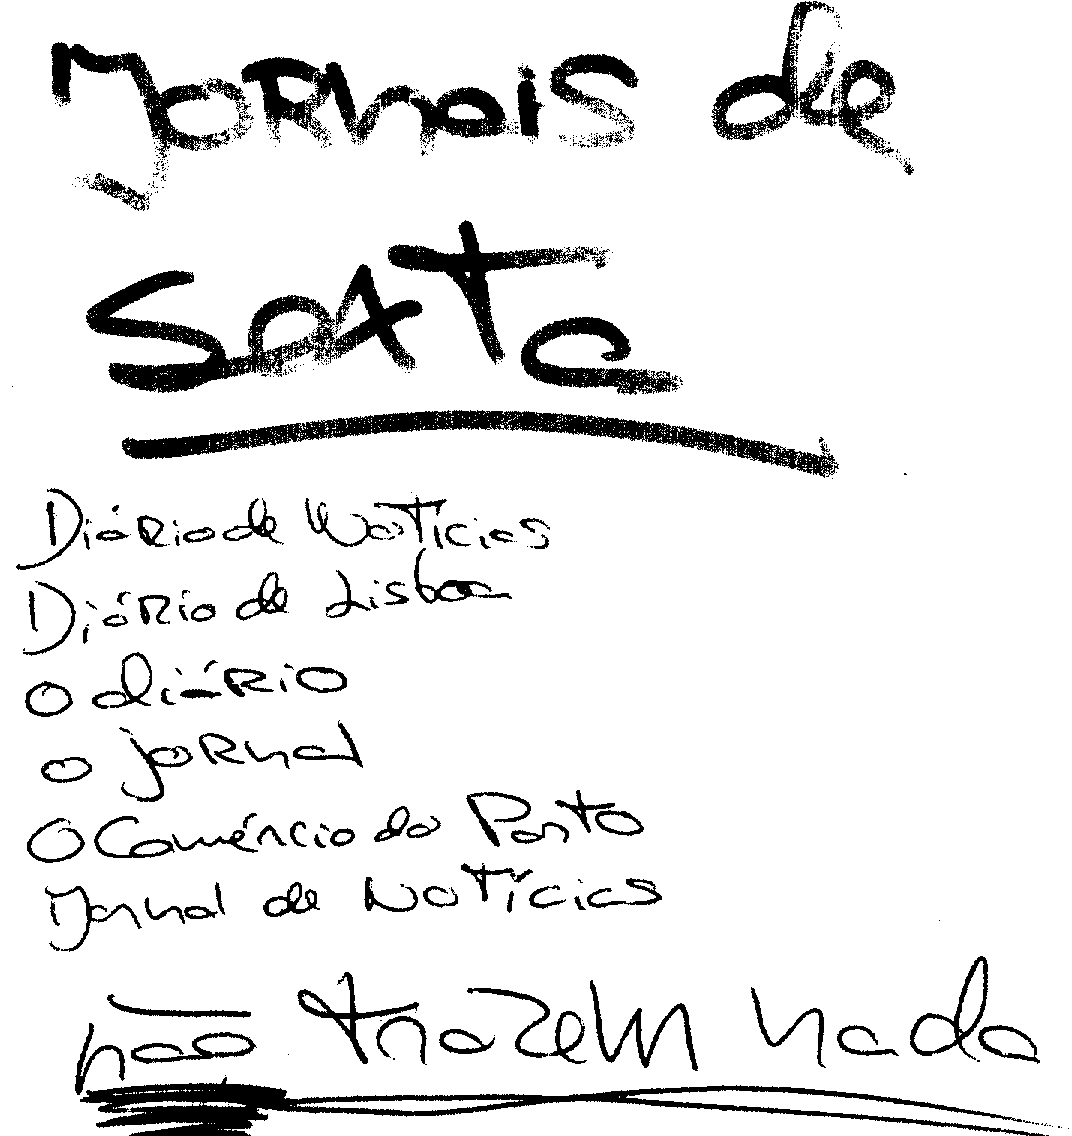 Jornais de
Sexta
Diário de Notícias
Diário de Lisboa
O diário
O jornal
O Comércio do Porto
Jornal de Notícias
não trazem nada